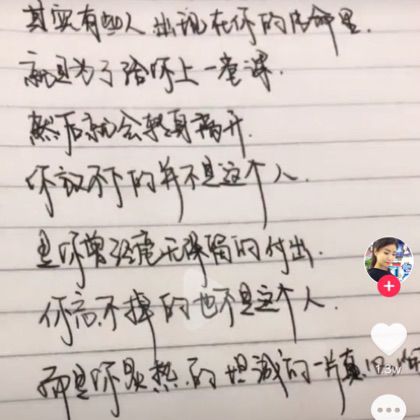 其实有些人出现在你的生命里.
就是为了给你上一堂课.
然后就会转身离开.
你放不下的并不是这个人.
是你曾经毫无保留的付出.
你忘不掉的也不是这个人.
而是你最热的坦诚的一片真心
1.3w